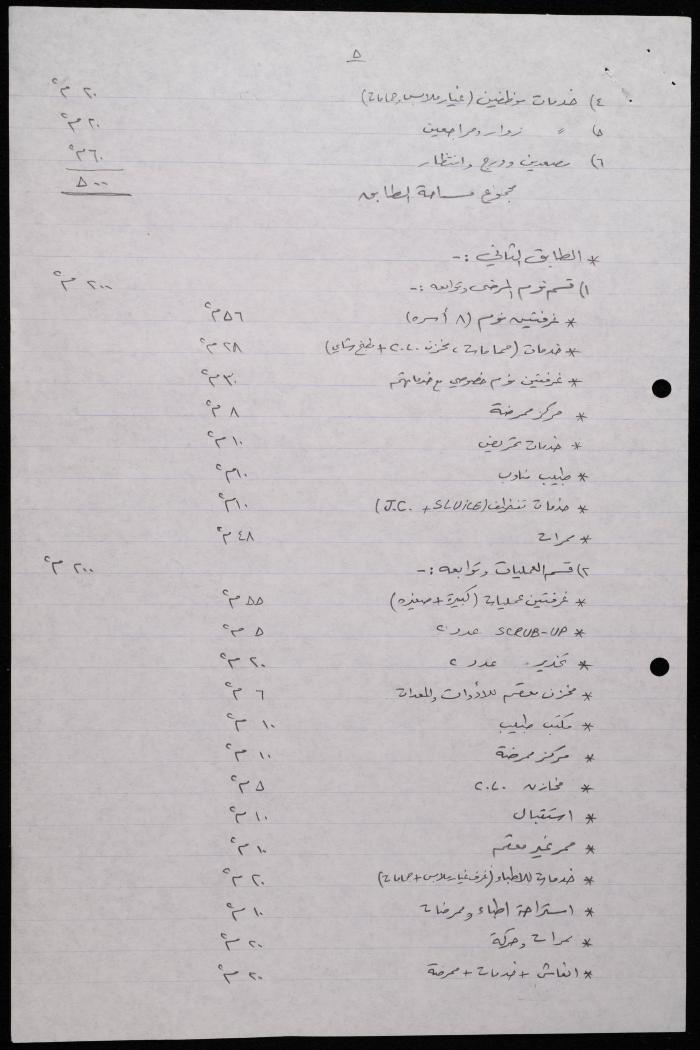 ٥
٤) خدمات موظفين (غيار ملابس وحمامات) ٢٠ م٢
٥) " زوار ومراجعين ٢٠ م٢
٦) مصعدين ودرج وانتظار ٦٠ م٢
مجموع مساحة الطابق ٥٠٠
* الطابق الثاني :-
١) قسم نوم المرضى وتوابعه :- ٢٠٠ م٢
* غرفتين نوم (٨ أسره) ٥٦ م٢
* خدمات (حمامات ، مخزن ٢.٢٠ + مطبخ شاي) ٢٨ م٢
* غرفتين نوم خصوصي مع خدماتهم ٣٠ م٢
* مركز ممرضة ٨ م٢
* خدمات تمريض ١٠ م٢
* طبيب مناوب ١٠ م٢
* خدمات تنظيف (J.C. + SLUICE) ١٠ م٢
* ممرات ٤٨ م٢
٢) قسم العمليات وتوابعه :- ٢٠٠ م٢
* غرفتين عمليات (كبيرة + صغيره) ٥٥ م٢
* SCRUB-UP عدد ٢ ٥ م٢
* تخدير عدد ٢ ٢٠ م٢
* مخزن معقم للأدوات والمعدات ٦ م٢
* مكتب طبيب ١٠ م٢
* مركز ممرضة ١٠ م٢
* مخازن ٥ م٢
* استقبال ١٠ م٢
* ممر غير معقم ١٠ م٢
* خدمات للاطباء (غرف غيار ملابس + حمامات) ٢٠ م٢
* استراحة اطباء وممرضات ١٠ م٢
* ممرات وحركة ٢٠ م٢
* انعاش + خدمات + ممرضة ٢٠ م٢